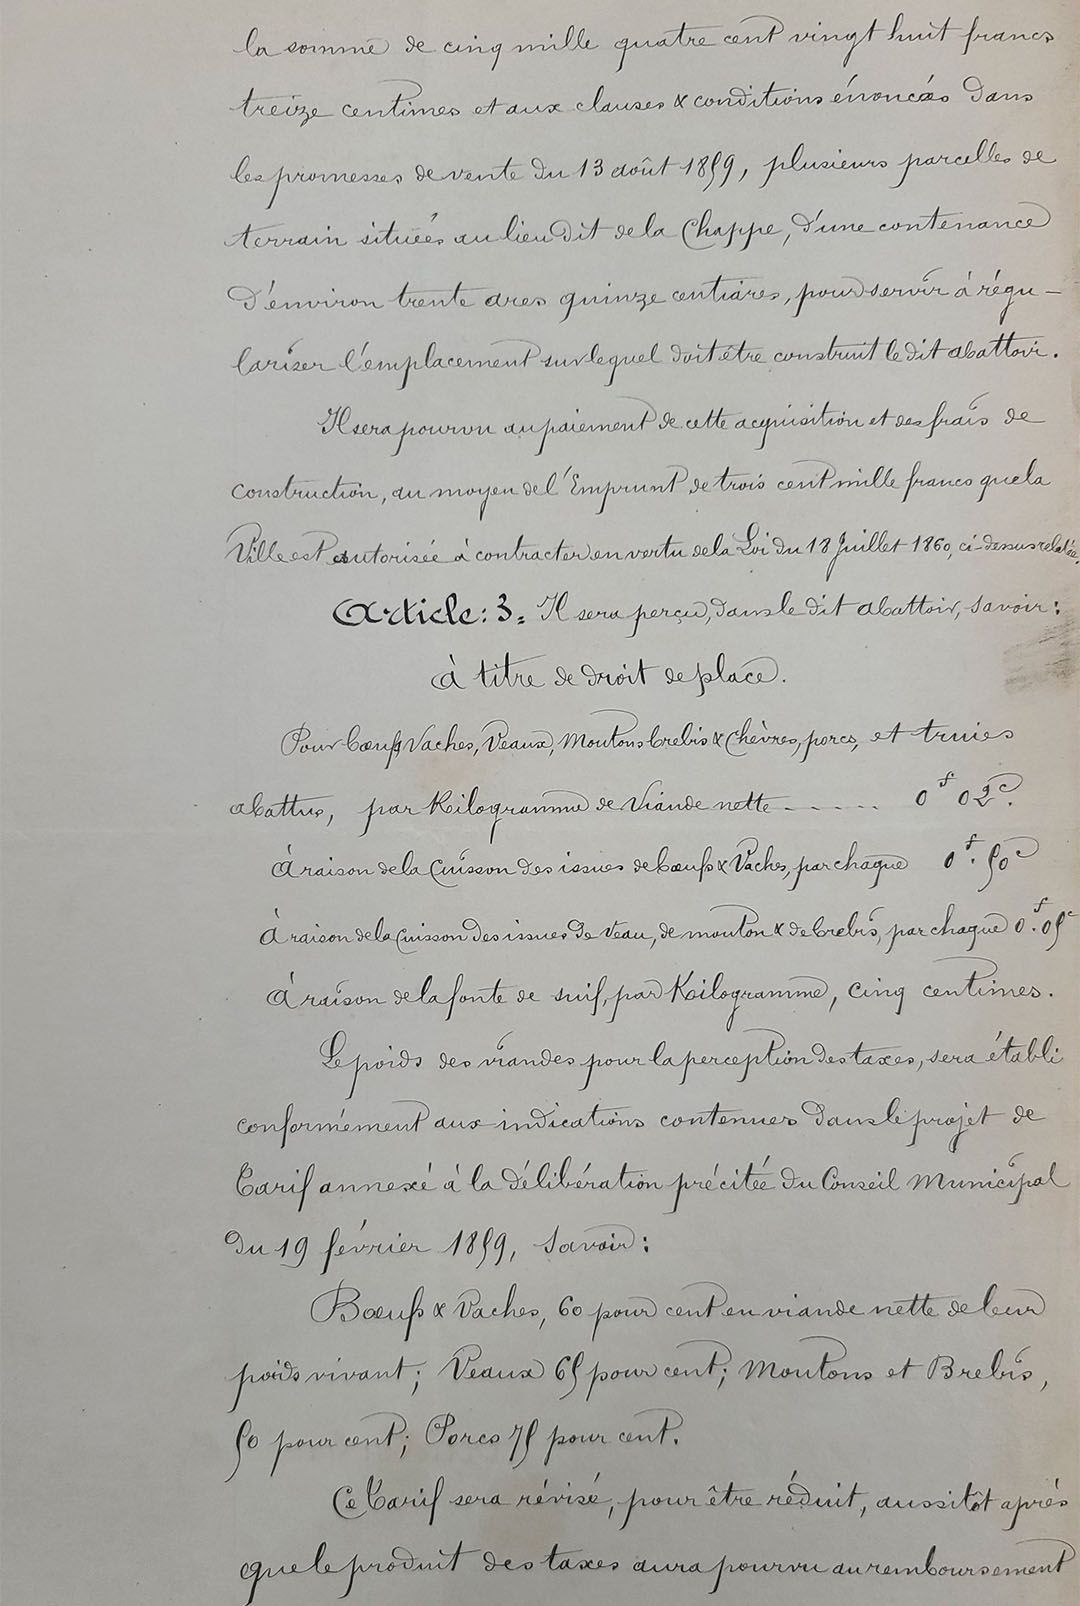 la somme de cinq mille quatre cent vingt huit francs
treize centimes et aux clauses & conditions énoncées dans
les promesses de vente du 13 août 1859, plusieurs parcelles de
terrain situées au lieu dit de la Chappe, d'une contenance
d'environ trente ares quinze centiares, pour servir à régu-
lariser l'emplacement sur lequel doit être construit le dit abattoir.
Il sera pourvu au paiement de cette acquisition et des frais de
construction, au moyen de l'Emprunt de trois cent mille francs que la
Ville est autorisée à contracter en vertu de la Loi du 18 Juillet 1860, ci-dessus relatée.
Article: 3. Il sera perçu, dans le dit abattoir, savoir:
à titre de droit de place.
Pour bœufs, Vaches, Veaux, Moutons brebis & Chèvres, porcs, et truies
abattus, par Kilogramme de Viande nette ------ 0f 02c.
à raison de la Cuisson des issues de bœufs & Vaches, par chaque 0f. 50c
à raison de la Cuisson des issues de Veau, de mouton & de brebis, par chaque 0f. 05c
à raison de la fonte de suif, par Kilogramme, cinq centimes.
Le poids des viandes pour la perception des taxes, sera établi
conformément aux indications contenues dans le projet de
Tarif annexé à la délibération précitée du Conseil Municipal
du 19 février 1859, Savoir:
Bœufs & Vaches, 60 pour cent en viande nette de leur
poids vivant; Veaux 65 pour cent; Moutons et Brebis,
50 pour cent; Porcs 75 pour cent.
Ce Tarif sera révisé, pour être réduit, aussitôt après
que le produit des taxes aura pourvu au remboursement